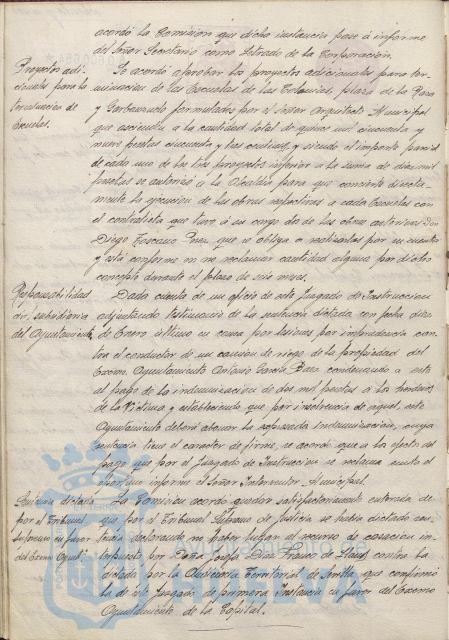 acordó la Comision que dicha instancia pase á informe
del Señor Secretario como Letrado de la Corporación.
Proyectos adi-
cionales para la
terminacion de
Escuelas.
Se acordó aprobar los proyectos adicionales para ter-
minacion de las Escuelas de las Colonias, plaza de la
y formulados por el Señor Arquitecto Municipal
que asciende a la cantidad total de quince mil cincuenta y
nueve pesetas cincuenta y tres centimos, y siendo el importe parcial
de cada uno de los tres proyectos inferior a la suma de diez mil
pesetas se autorizó á la Alcaldia para que concierte directa-
mente la ejecucion de las obras respectivas a cada Escuelas con
el contratista que tuvo á su cargo las obras anteriores Don
Diego Toscano Perez que se obliga a realizarlas por su cuenta
y está conforme en no reclamar cantidad alguna por dicho
concepto durante el plazo de seis meses.
Responsabilidad
civ. subsidiaria
del Ayuntamiento
Dada cuenta de un oficio de este Juzgado de Instruccion
adjuntando testimonio de la sentencia dictada con fecha diez
de Enero último en causa por lesiones por imprudencia con-
tra el conductor de un camion de riego de la propiedad del
Excmo. Ayuntamiento Antonio Garcia Baez condenando a este
al pago de la indemnizacion de dos mil pesetas á los herederos
de la Victima y estableciendo que por insolvencia de aquel, este
Ayuntamiento deberá abonar la expresada indemnizacion, cuya
sentencia tiene el caracter de firme, se acordó que a los efectos del
pago que por el Juzgado de Instruccion se reclama emita el
oportuno informe el Señor Interventor Municipal.
Sentencia dictada
por el Tribunal
Supremo en favor
del Excmo Ayunt.
La Comision acordó quedar satisfactoriamente enterada de
que por el Tribunal Supremo de Justicia se habia dictado sen-
tencia declarando no haber lugar al recurso de casacion in-
terpuesto por Doña Josefa Diaz Franco de contra la
dictada por la Audiencia Territorial de Sevilla que confirmó
la de este Juzgado de primera Instancia en favor del Excmo
Ayuntamiento de la Capital.